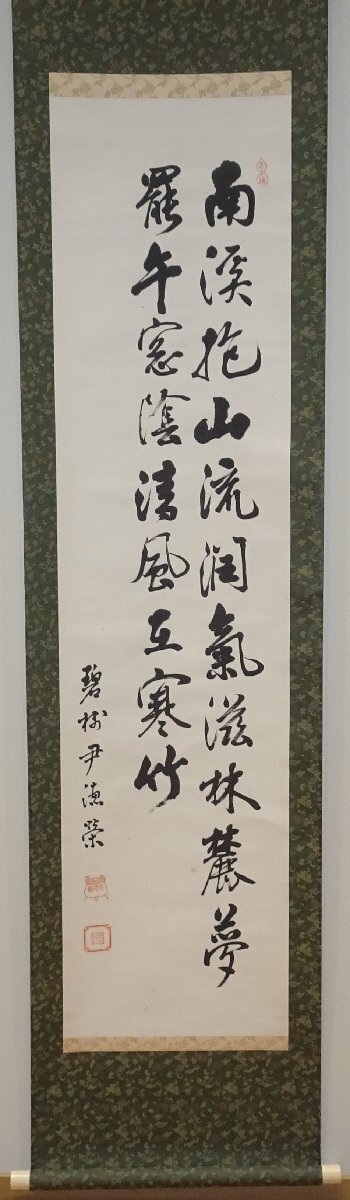 南溪抱山流润氣滋林麓夢
罷午窓陰清風在寒竹
碧樹尹德榮